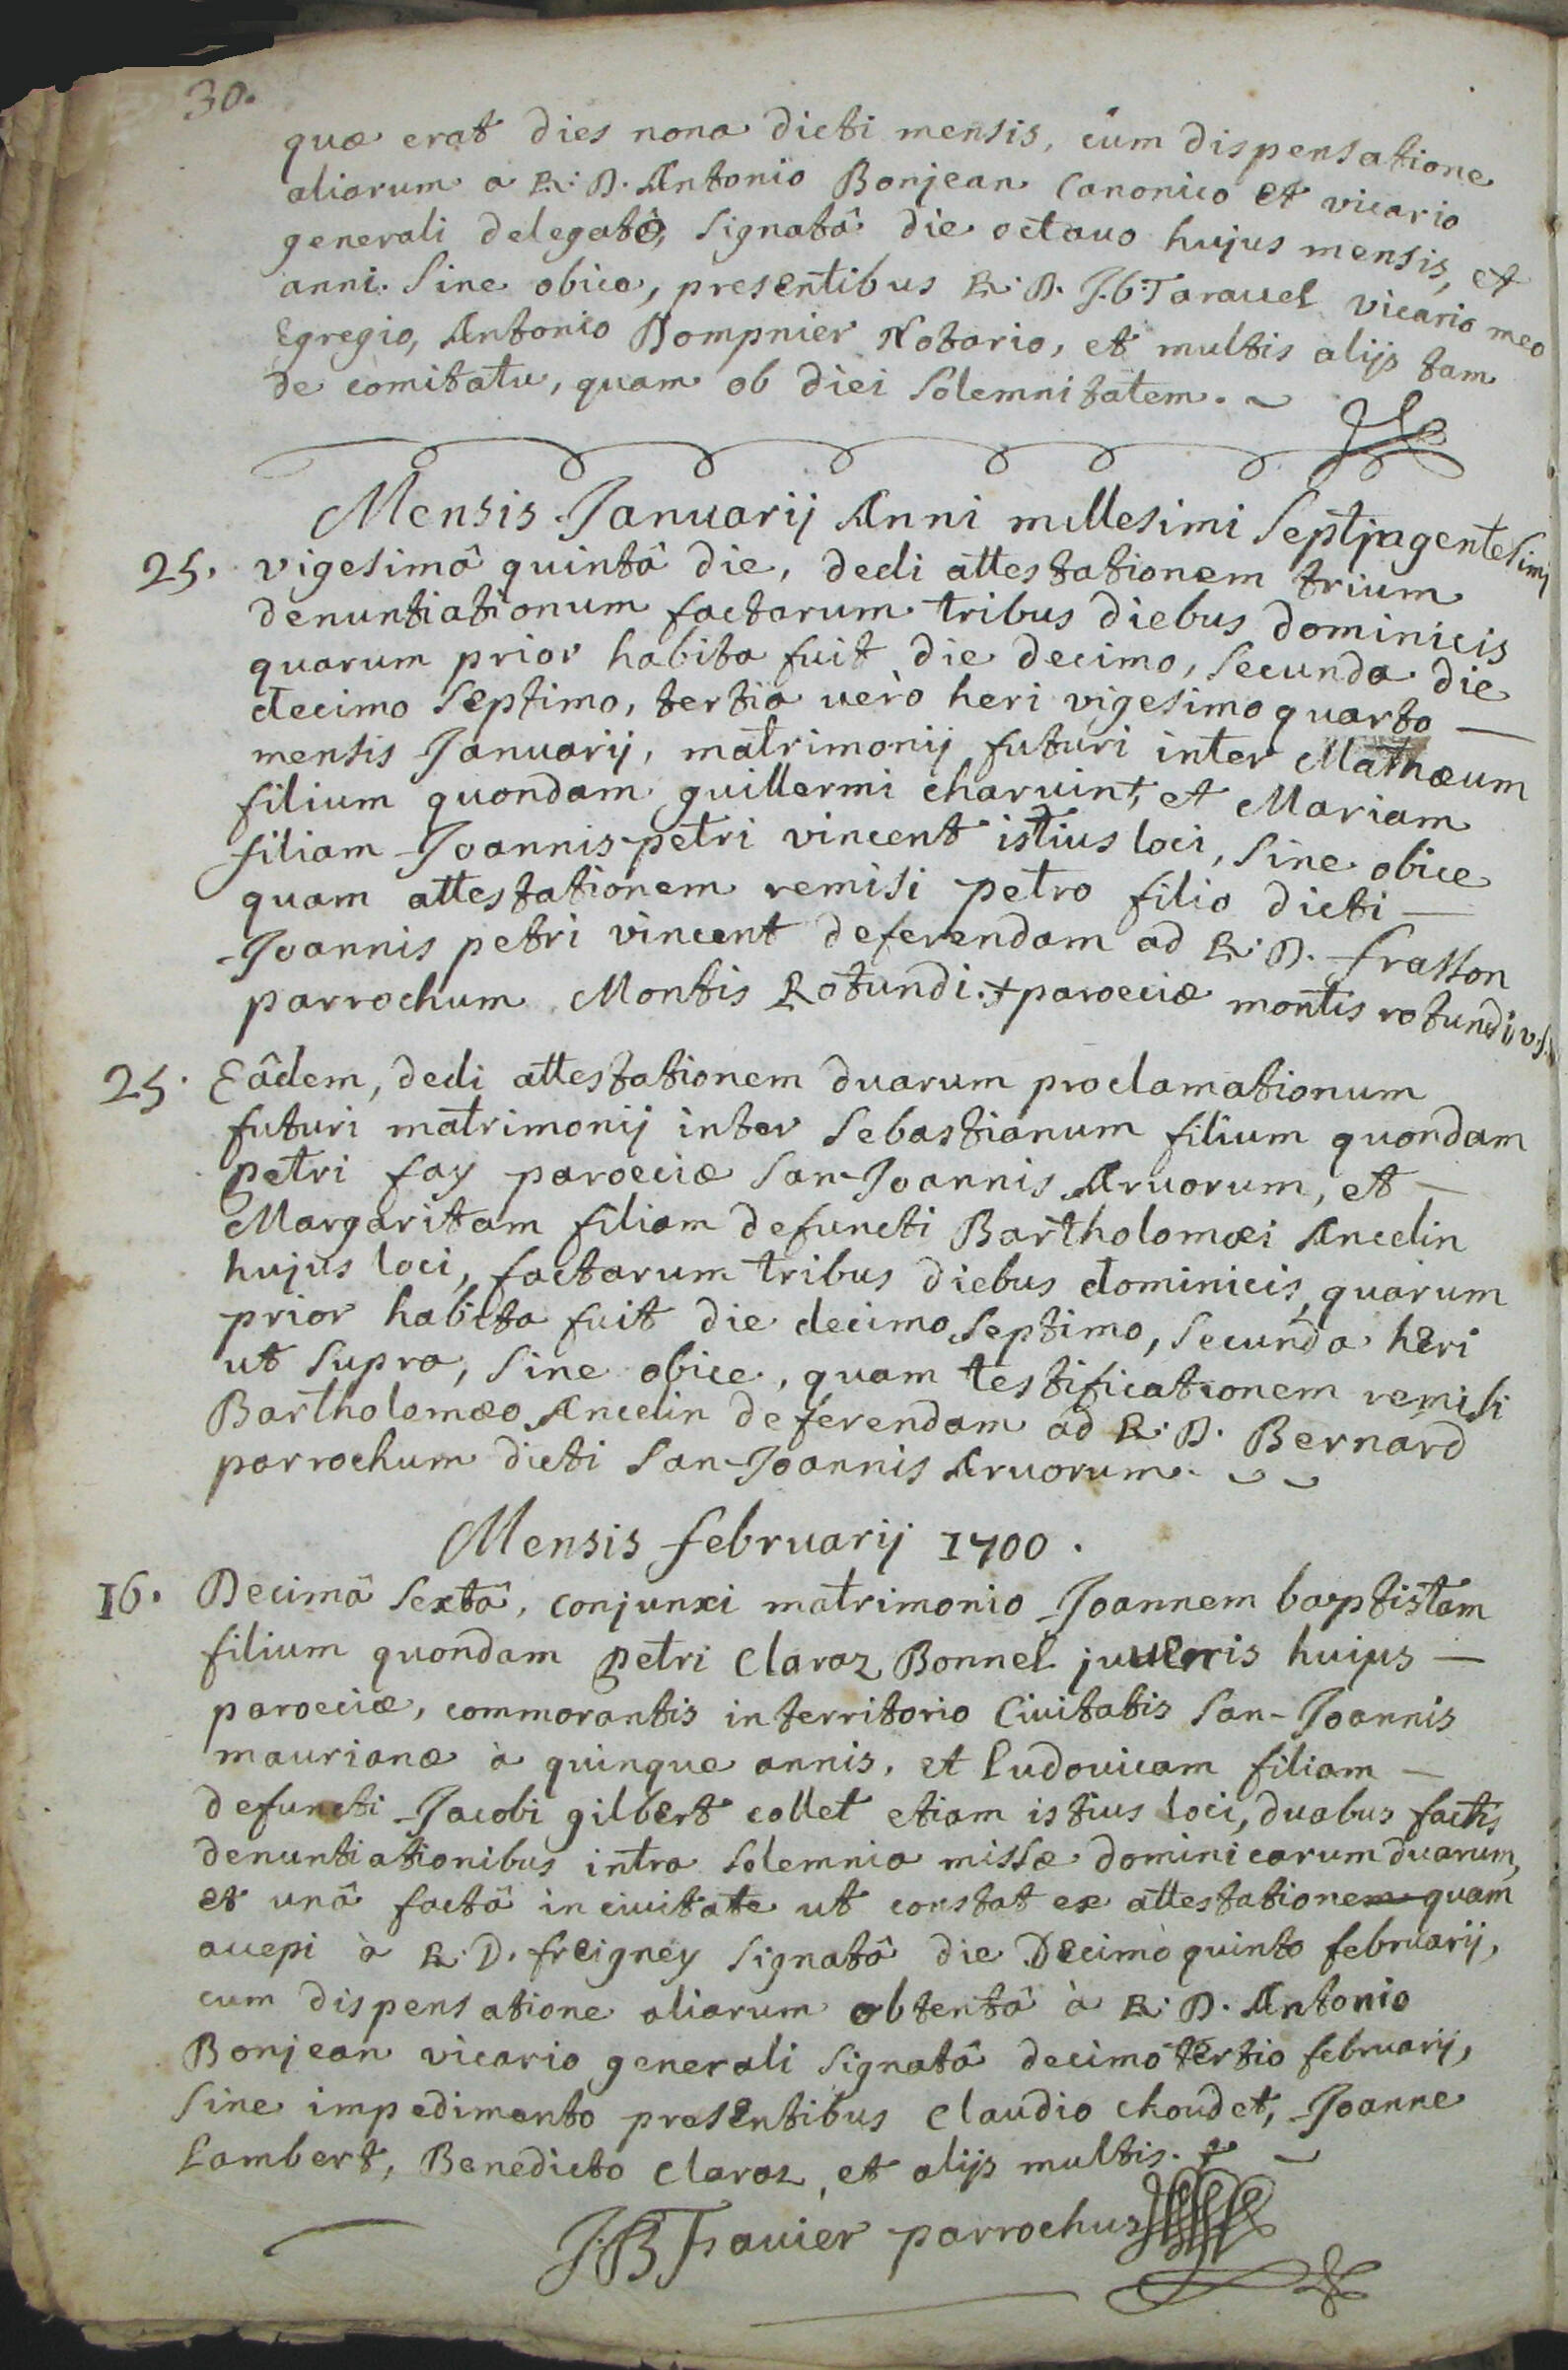 30.
quæ erat dies nona dicti mensis, cum dispensatione
aliarum a R: D. Antonio Bonjean Canonico et vicario
generali delegatô, signatâ die octavo hujus mensis, et
anni. Sine obice, presentibus R: D. J. b: Taravel vicario meo
Egregio, Antonio Dompnier Notario, et multis alijs tam
de comitatu, quam ob diei solemnitatem.
Mensis Januarij Anni millesimi Septingentesimi
25. vigesimâ quintâ die, dedi attestationem trium
denuntiationum factarum tribus diebus dominicis
quarum prior habita fuit die decimo, secunda die
decimo septimo, tertia verò heri vigesimo quarto —
mensis Januarij, matrimonij futuri inter Mathæum
filium quondam guillermi charvint, et Mariam
filiam Joannis-petri vincent istius loci, sine obice
quam attestationem remisi petro filio dicti —
Joannis petri vincent deferendam ad R: D. frasson
parrochum Montis Rotundi. + parœciæ montis rotundi
25. Eâdem, dedi attestationem duarum proclamationum
futuri matrimonij inter Sebastianum filium quondam
petri fay parœciæ San-Joannis Arvorum, et —
Margaritam filiam defuncti Bartholomæi Ancelin
hujus loci, factarum tribus diebus dominicis, quarum
prior habita fuit die decimo septimo, secunda heri
ut supra, sine obice, quam testificationem remisi
Bartholomæo Ancelin deferendam ad R: D. Bernard
parrochum dicti San-Joannis Arvorum.
Mensis februarij 1700.
16. Decimâ sextâ, conjunxi matrimonio Joannem baptistam
filium quondam petri Claraz Bonnel juvenis hujus —
parœciæ, commorantis in territorio Civitatis San-Joannis
maurianæ à quinque annis, et Ludovicam filiam —
defuncti Jacobi gilbert collet etiam istius loci, duabus factis
denuntiationibus intra solemnia missæ dominicarum duarum,
et unâ factâ in civitate ut constat ex attestationem quam
accepi à R: D. freigney signatâ die Decimò quinto februarij,
cum dispensatione aliarum obtentâ à R: D. Antonio
Bonjean vicario generali signatâ decimo tertio februarij,
sine impedimento presentibus Claudio choudet, Joanne
Lambert, Benedicto Claraz, et alijs multis.
J: B Travier parrochus